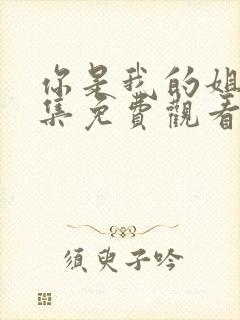 你是我的姐
集免費觀看
須臾子吟